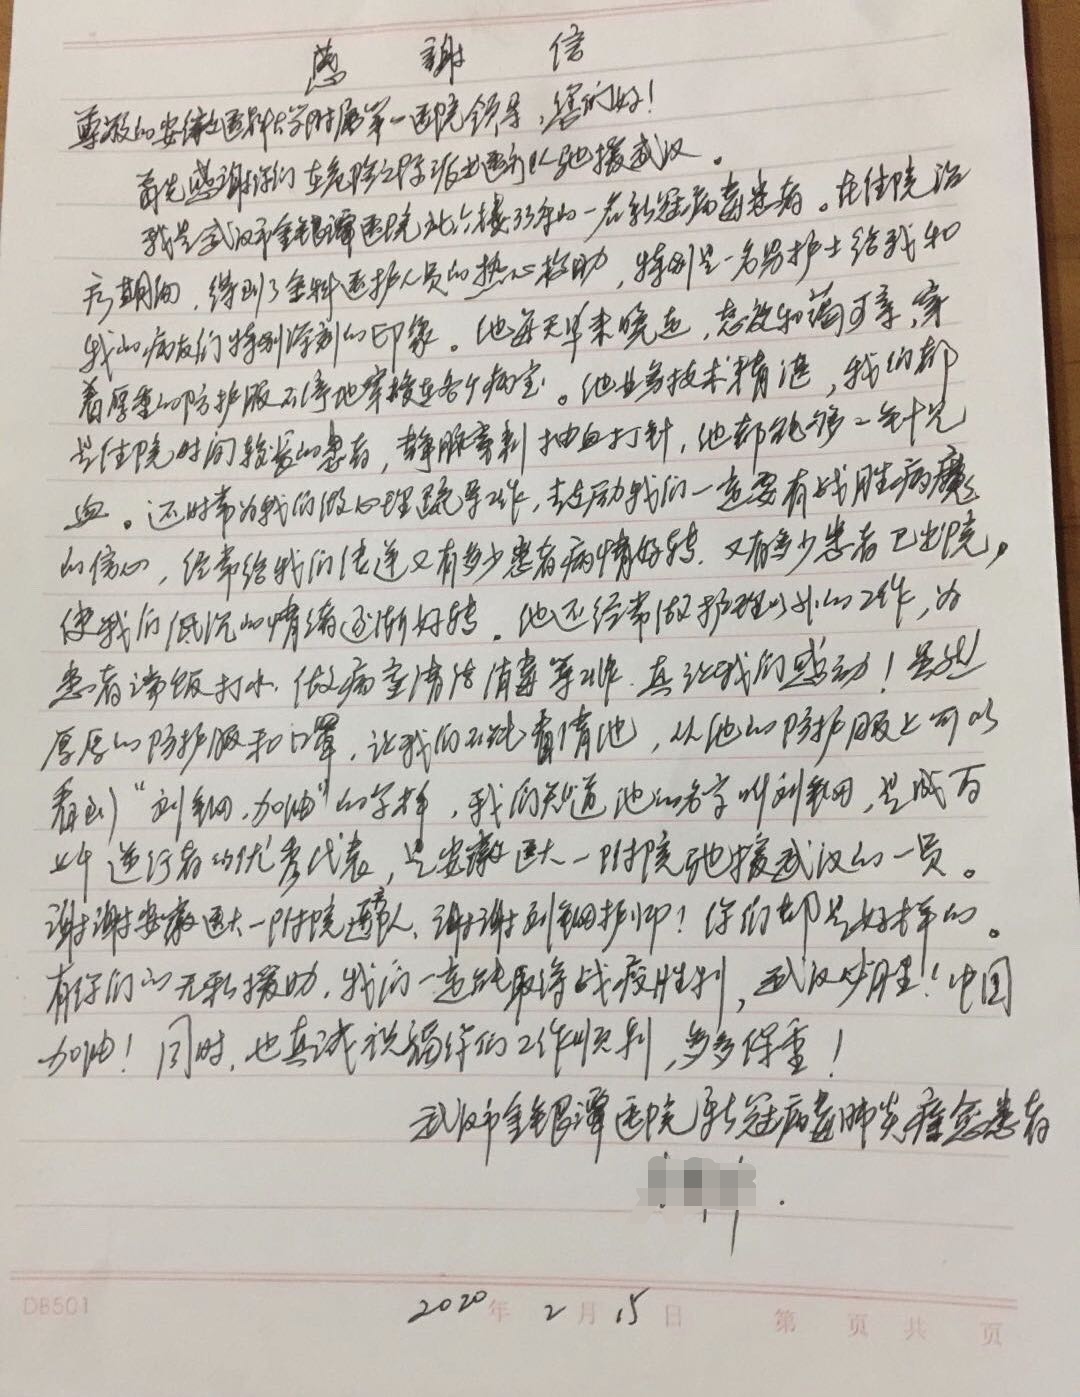 感謝信
尊敬的安徽医科大学附属第一医院领导，您们好！
首先感谢你们在危险之际派出医疗队驰援武汉。
我是武汉市金银潭医院北六楼33床的一名新冠病毒患者。在住院治
疗期间，得到了全科医护人员的热心救助，特别是一名男护士给我和
我的病友们特别深刻的印象。他每天早来晚走，态度和蔼可亲，穿
着厚重的防护服不停地穿梭在各个病室。他业务技术精湛，我们都
是住院时间较长的患者，静脉穿刺抽血打针，他都能够一针见
血。还时常为我们做心理疏导工作，鼓励我们一定要有战胜病魔
的信心，经常给我们传递又有多少患者病情好转，又有多少患者已出院，
使我们低沉的情绪逐渐好转。他还经常做护理以外的工作，为
患者端饭打水，做病室清洁消毒等工作，真让我们感动！虽然
厚厚的防护服和口罩，让我们不能看清他，从他的防护服上可以
看到“刘 ，加油”的字样，我们知道他的名字叫刘 ，是成百
上千逆行者的优秀代表，是安徽医大一附院驰援武汉的一员。
谢谢安徽医大一附院医疗队，谢谢刘 护师！你们都是好样的。
有你们的无私援助，我们一定能取得战疫胜利，武汉必胜！中国
加油！同时，也真诚祝福你们工作顺利，多多保重！
武汉市金银潭医院新冠病毒肺炎痊愈患者
DB501 2020年2月15日 第 页 共 页